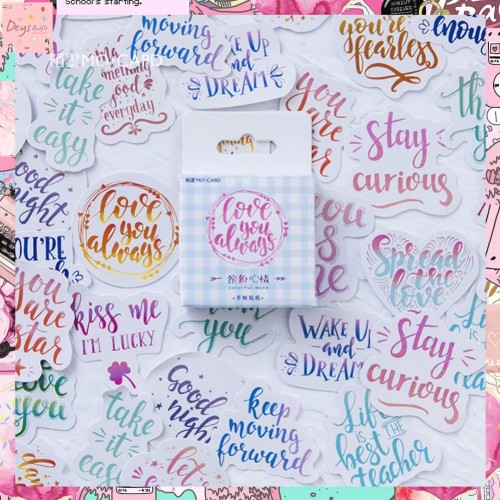 School's starting.
Deys
陌墨MO·CARD
moving
forward
WAKE UP
and
DREAM
you're
fearless
enough
take
it
easy
something
good
everyday
you
are
star
stay
curious
Good
night
YOU'RE
love
you
always
陌墨MO·CARD
love
you
always
缤纷心情
Colorful mood
手帐贴纸
Spread
the
love
you
are
star
kiss me
I'M LUCKY
you
WAKE UP
and
DREAM
stay
curious
love
you
take
it
easy
Good
night
let
keep
moving
forward
Life
IS THE
best
teacher